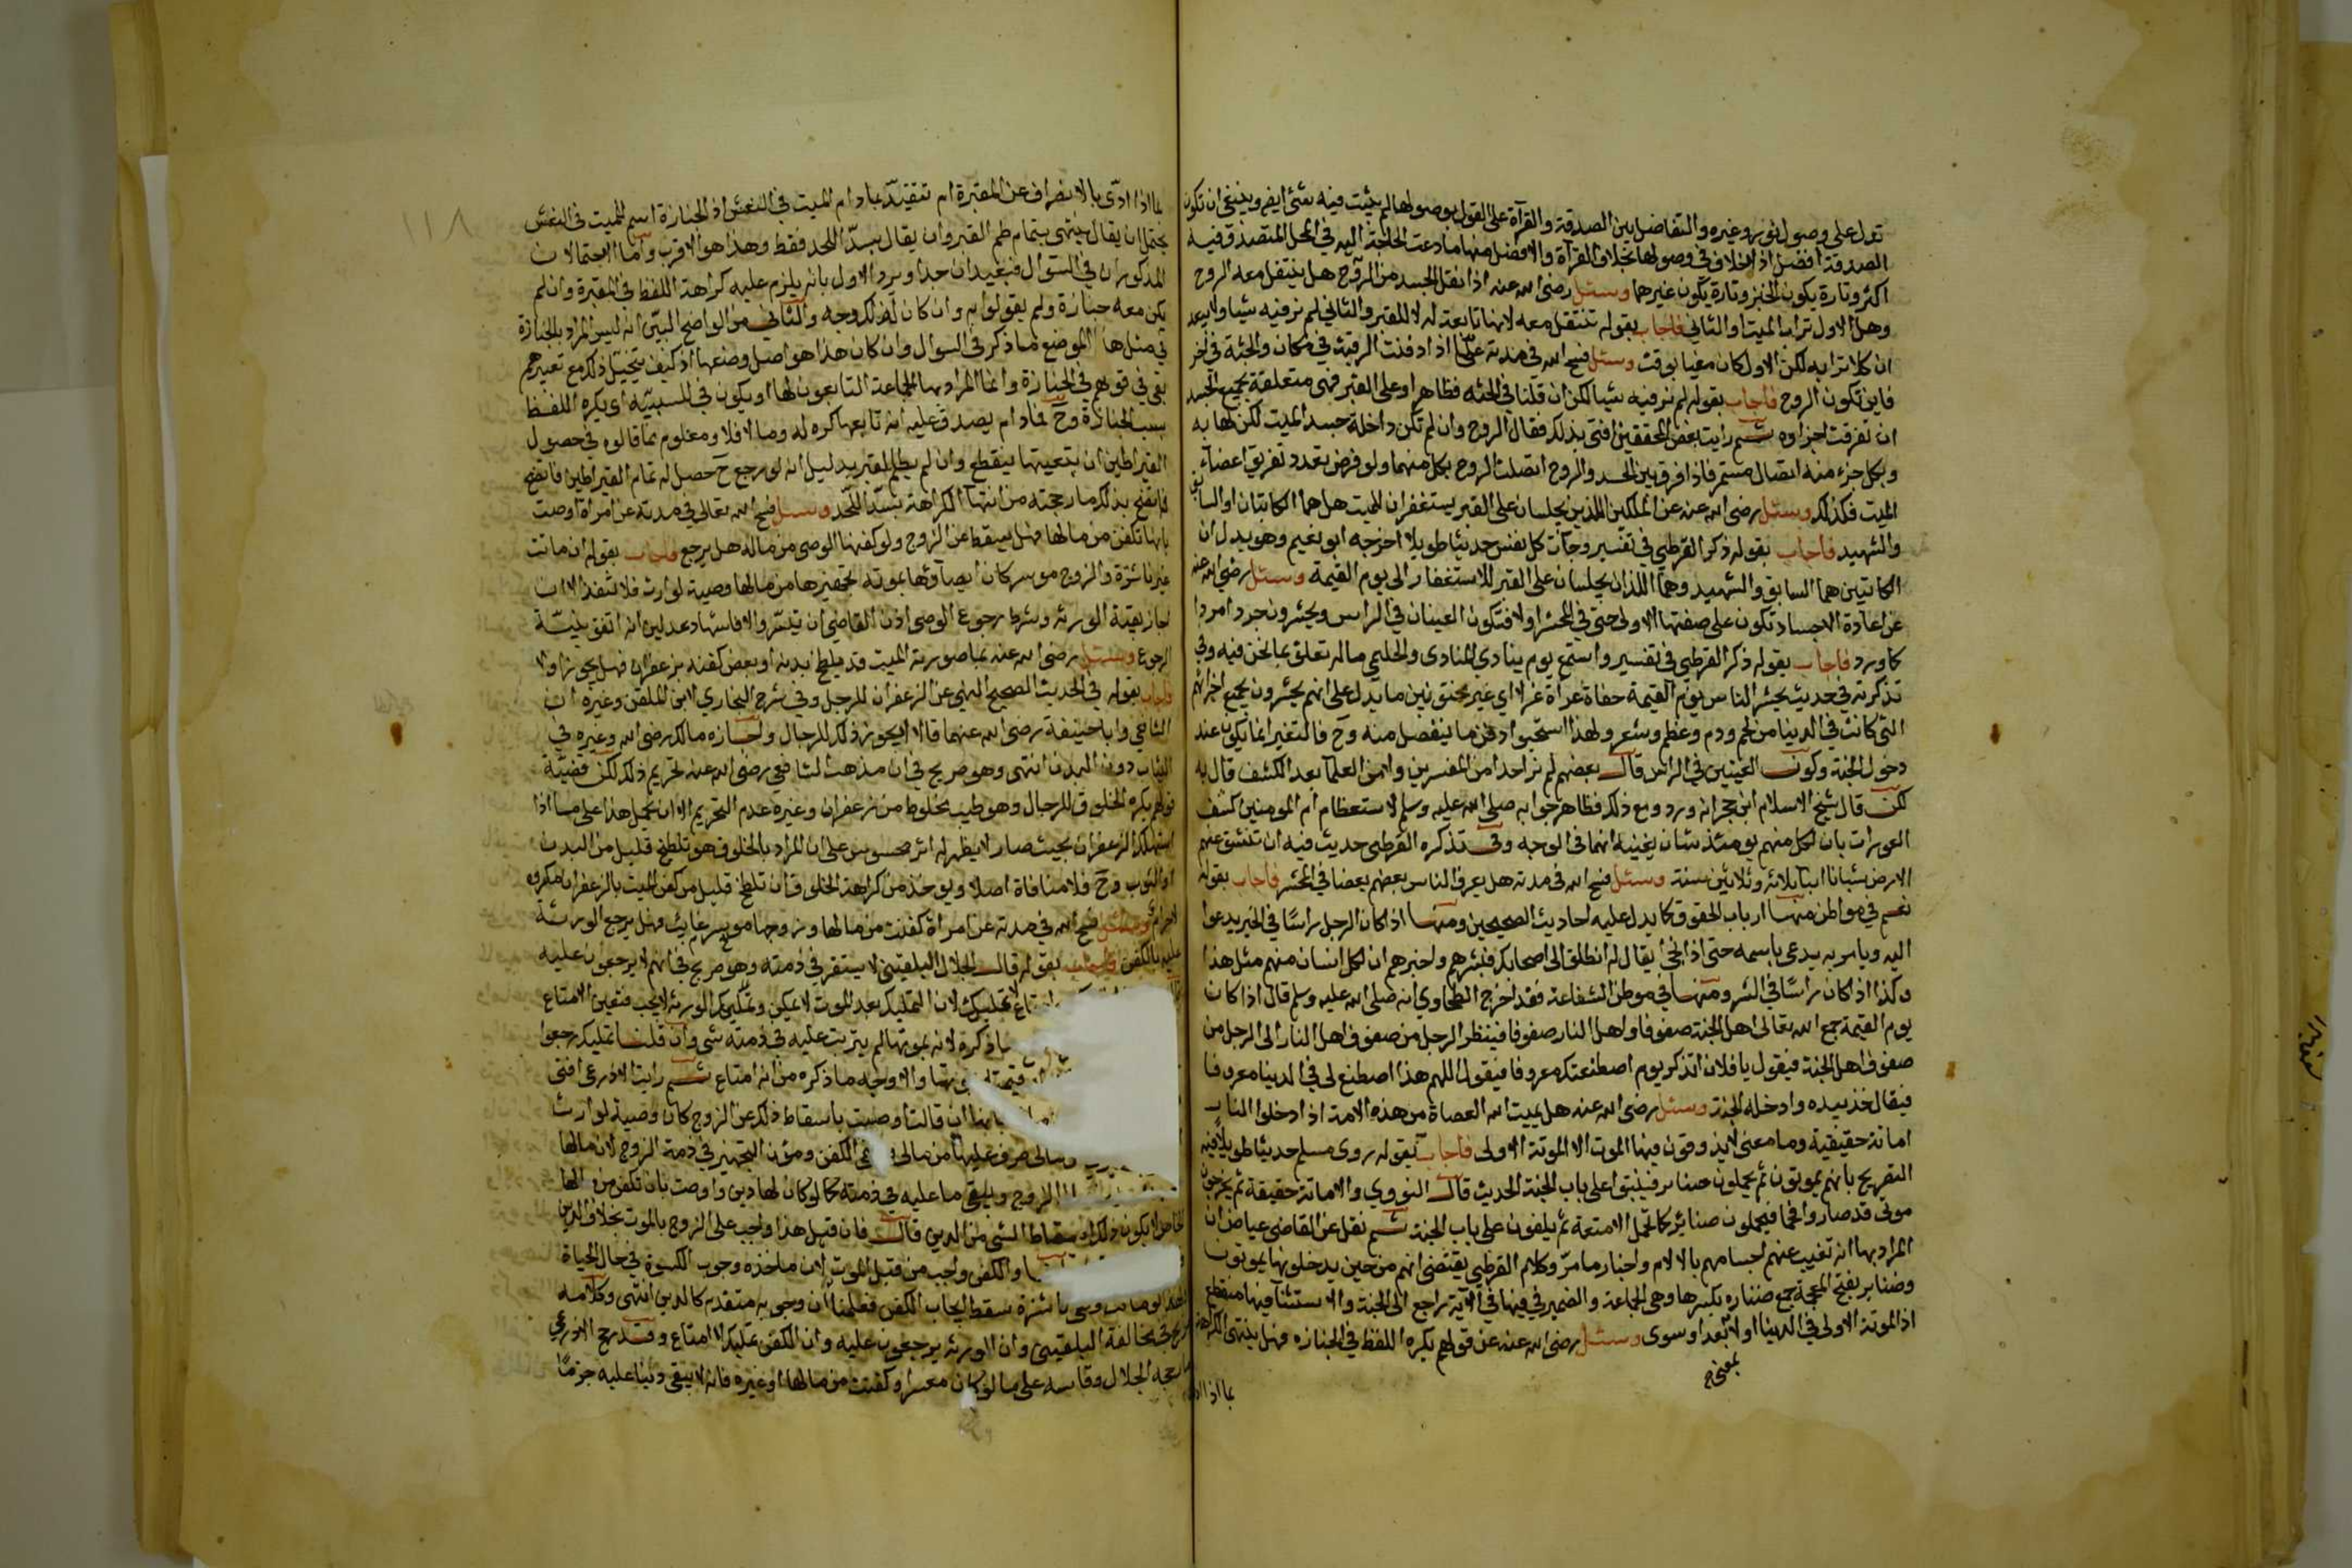 تدل على وصول ثوبه وغيره والتفاضل بين الصدقة والقرآة على القول بوصولها لم يثبت فيه شئ ايض وينبغي ان تكون
الصدقة افضل اذ الخلاف في وصولها بخلاف القرآة والافضل منها ما دعت الحاجة اليه في المحل المتصدق فيه
اكثر وتارة يكون الخبز وتارة يكون غيرهما وسئل رضي الله عنه اذا نقل الجسد من الروح هل ينتقل معه الروح
وهل الاول تراب الميت او الثاني فاجاب بقوله تنتقل معه لانها تابعة له لا للقبر والثاني لم نر فيه شيا ولا يبعد
ان كلا ترابه لكن الاول كان مغيا بوقت وسئل فسح الله في مدته عما اذا دفنت الرقبة في مكان والجثة في اخر
فاين تكون الروح فاجاب بقوله لم نر فيه شيا لكن ان قلنا في الجثه فظاهر او على القبر فهي متعلقة بجميع الجسد
ان تفرقت اجزاوه ثم رايت بعض المحققين افتى بذلك فقال الروح وان لم تكن داخلة جسد الميت لكن لها به
وبكل جزء منه اتصال مستمر فاذا فرق بين الجسد والروح اتصلت الروح بكل منهما ولو فرض تعدد تفريق اعضاء
الميت فكذلك وسئل رضي الله عنه عن الملكين اللذين يجلسان على القبر يستغفران للميت هل هما الكاتبان او السابق
والشهيد فاجاب بقوله ذكر القرطبي في تفسير وجآت كل نفس حديثا طويلا اخرجه ابو نعيم وهو يدل ان
الكاتبين هما السابق والشهيد وهما اللذان يجلسان على القبر للاستغفار الى يوم القيمة وسئل رضي الله عنه
عن اعادة الاجساد تكون على صفتها الاولى حتى في المحشر او لا فتكون العينان في الراس ويحشرون جرد امردا
كما ورد فاجاب بقوله ذكر القرطبي في تفسير واستمع يوم ينادي المنادى والحليمي ماله تعلق بما نحن فيه وفي
تذكرته في حديث يحشر الناس يوم القيمة حفاة عراة غرلا اي غير مختونين ما يدل على انهم يحشرون بجميع اجزائهم
التي كانت في الدنيا من لحم ودم وعظم وشعر ولهذا استحبوا دفن ما ينفصل منه وح فالتغير انما يكون عند
دخول الجنة وكون العينين في الراس قال بعضهم لم نر احدا من المفسرين وايمة العلما بعد الكشف قال به
لكن قال شيخ الاسلام ابن حجر انه ورد ومع ذلك فظاهر جوابه صلى الله عليه وسلم لاستعظام ام المومنين كشف
العورات بان لكل منهم يومئذ شان يغنيه انهما في الوجه وفي تذكره القرطبي حديث فيه ان تنشق عنهم
الارض شبانا ابنا ثلاثه وثلاثين سنة وسئل فسح الله في مدته هل يعرف الناس بعضهم بعضا في المحشر فاجاب بقوله
نعم في مواطن منها ارباب الحقوق كما يدل عليه احاديث الصحيحين ومنها اذا كان الرجل راسا في الخير يدعوا
اليه ويامر به يدعى باسمه حتى اذا نجى يقال له انطلق الى اصحابك فبشرهم واخبرهم ان لكل انسان منهم مثل هذا
وكذا اذا كان راسا في الشر ومنها في موطن الشفاعة فقد اخرج الطحاوي انه صلى الله عليه وسلم قال اذا كان
يوم القيمة جمع الله تعالى اهل الجنة صفوفا واهل النار صفوفا فينظر الرجل من صفوف اهل النار الى الرجل من
صفوف اهل الجنة فيقول يا فلان اتذكر يوم اصطنعتك معروفا فيقول اللهم هذا اصطنع لى في الدنيا معروفا
فيقال خذ بيده وادخله الجنة وسئل رضي الله عنه هل يميت الله العصاة من هذه الامة اذا دخلوا النار
اماتة حقيقية وما معنى لا يذوقون فيها الموت الا الموتة الاولى فاجاب بقوله روى مسلم حديثا طويلا فيه
التصريح بانهم يموتون ثم يحملون ضبائر فيلقوا على باب الجنة الحديث قال النووي والاماتة حقيقة ثم يخرجون
موتى قد صاروا فحما فيحملون ضبائر كما تحمل الامتعة ثم يلقون على باب الجنة ثم نقل عن القاضي عياض ان
المراد بها انه تغيب عنهم احساسهم بالالام واختار ما مر وكلام القرطبي يقتضي انهم من حين يدخلونها يموتون
وضبائر بفتح المعجمة جمع ضباره بكسرها وهي الجماعة والضمير في فيها في الآية راجع الى الجنة والاستثنا فيها منقطع
اذ الموتة الاولى في الدنيا او لا بمعنى بعد او سوى وسئل رضي الله عنه عن قولهم يكره اللغط في الجنازه فهل ينتهي الكراهة
بما اذا ادى
بما اذا ادى بالانصراف عن المقبرة ام تتقيد بما دام الميت في النعش اذ الجنازة اسم للميت في النعش
يحتمل ان يقال ينتهي بتمام طم القبر وان يقال بسد اللحد فقط وهذا هو الاقرب واما الاحتمالان
المذكوران في السؤال فبعيدان جدا ويرد الاول بانه يلزم عليه كراهة اللغط في المقبرة وان لم
يكن معه جنازة ولم يقولوا به وان كان لذلك وجه والثاني من الواضح البين انه ليس المراد بالجنازة
في مثل هذا الموضع ما ذكر في السوال وان كان هذا هو اصل وضعها اذ كيف يتخيل ذلك مع تعبيرهم
بفي في قولهم في الجنازة وانما المراد بها الجماعة التابعون لها او يكون في للسببية اي يكره اللغط
بسبب الجنازة وح فمادام يصدق عليه انه تابعها كره له وما لا فلا ومعلوم مما قالوه في حصول
القيراطين ان تبعيتها ينقطع وان لم يطم القبر بدليل انه لو رجع ح حصل له تمام القيراطين فاتضح
فاتضح بذلك ما رجحته من انتها الكراهة بسد اللحد وسئل فسح الله تعالى في مدته عن امراة اوصت
بانها تكفن من مالها فهل يسقط عن الزوج ولو كفنها الوصى من ماله هل يرجع فاجاب بقوله ان ماتت
غير ناشزة والزوج موسر كان ايصاؤها بموته تجهيزها من مالها وصية لوارث فلا تنفذ الا ان
اجاز بقية الورثه وشرط رجوع الوصى اذن القاضي ان تيسر والا فاشهاد عدلين انه انفق بنية
الرجوع وسئل رضي الله عنه بما صورته الميت قد يلطخ بدنه او بعض كفنه بزعفران فهل يجوز او لا
فاجاب بقوله في الحديث الصحيح النهي عن الزعفران للرجل وفي شرح البخاري لابن الملقن وغيره ان
الشافعي وابا حنيفة رضي الله عنهما قالا لا يجوز ذلك للرجال واجازه مالك رضي الله وغيره في
الثياب دون البدن انتهى وهو صريح في ان مذهب الشافعي رضي الله عنه تحريم ذلك لكن قضية
قولهم يكره الخلوق للرجال وهو طيب مخلوط من زعفران وغيره عدم التحريم الا ان يحمل هذا على ما اذا
استهلك الزعفران بحيث صار لا يظهر له اثر محسوس على ان المراد بالخلوق هو تلطخ قليل من البدن
او الثوب وح فلا منافاة اصلا ويوخذ من كراهة الخلوق ان تلطخ قليل من كفن الميت بالزعفران مكروه
وسئل فسح الله في مدته عن امراة كفنت من مالها وزوجها موسر غايب فهل يرجع الورثة
عليه بالكفن فاجاب بقوله قال الجلال البلقيني لا يستقر في ذمته وهو صريح في انهم لا يرجعون عليه
لا تمليك لان التمليك بعد الموت لا يمكن وتمليك الورثة لا يجب فتعين الامتاع
ما ذكره لانه بموتها لم يترتب عليه في ذمته شي وان قلنا تمليك رجعوا
والاوجه ما ذكره من انه امتاع ثم رايت الاذرعي افتى
بانها ان قالت اوصيت باسقاط ذلك عن الزوج كان وصية لوارث
الكفن ومؤن التجهيز في ذمة الزوج لان مالها
الزوج ويبقى ما عليه في ذمته كما لو كان لها دين واوصت بان تكفن من مالها
لا يكون ذلك اسقاط الشي من الدين قال فان قيل هذا واجب على الزوج بالموت بخلاف الدين
والكفن واجب من قبل الموت لان ماخذه وجوب الكسوة في حال الحياة
وهي ناشزة سقط ايجاب الكفن فعلمنا ان وجوبه متقدم كالدين انتهى وكلامه
في مخالفة البلقيني وان الورثه يرجعون عليه وان الكفن تمليك لا امتاع وقد رجح الاذرعي
ما رجحه الجلال وقاسه على ما لو كان معسرا وكفنت من مالها او غيره فانه لا يبقى دينا عليه جزما
١١٨